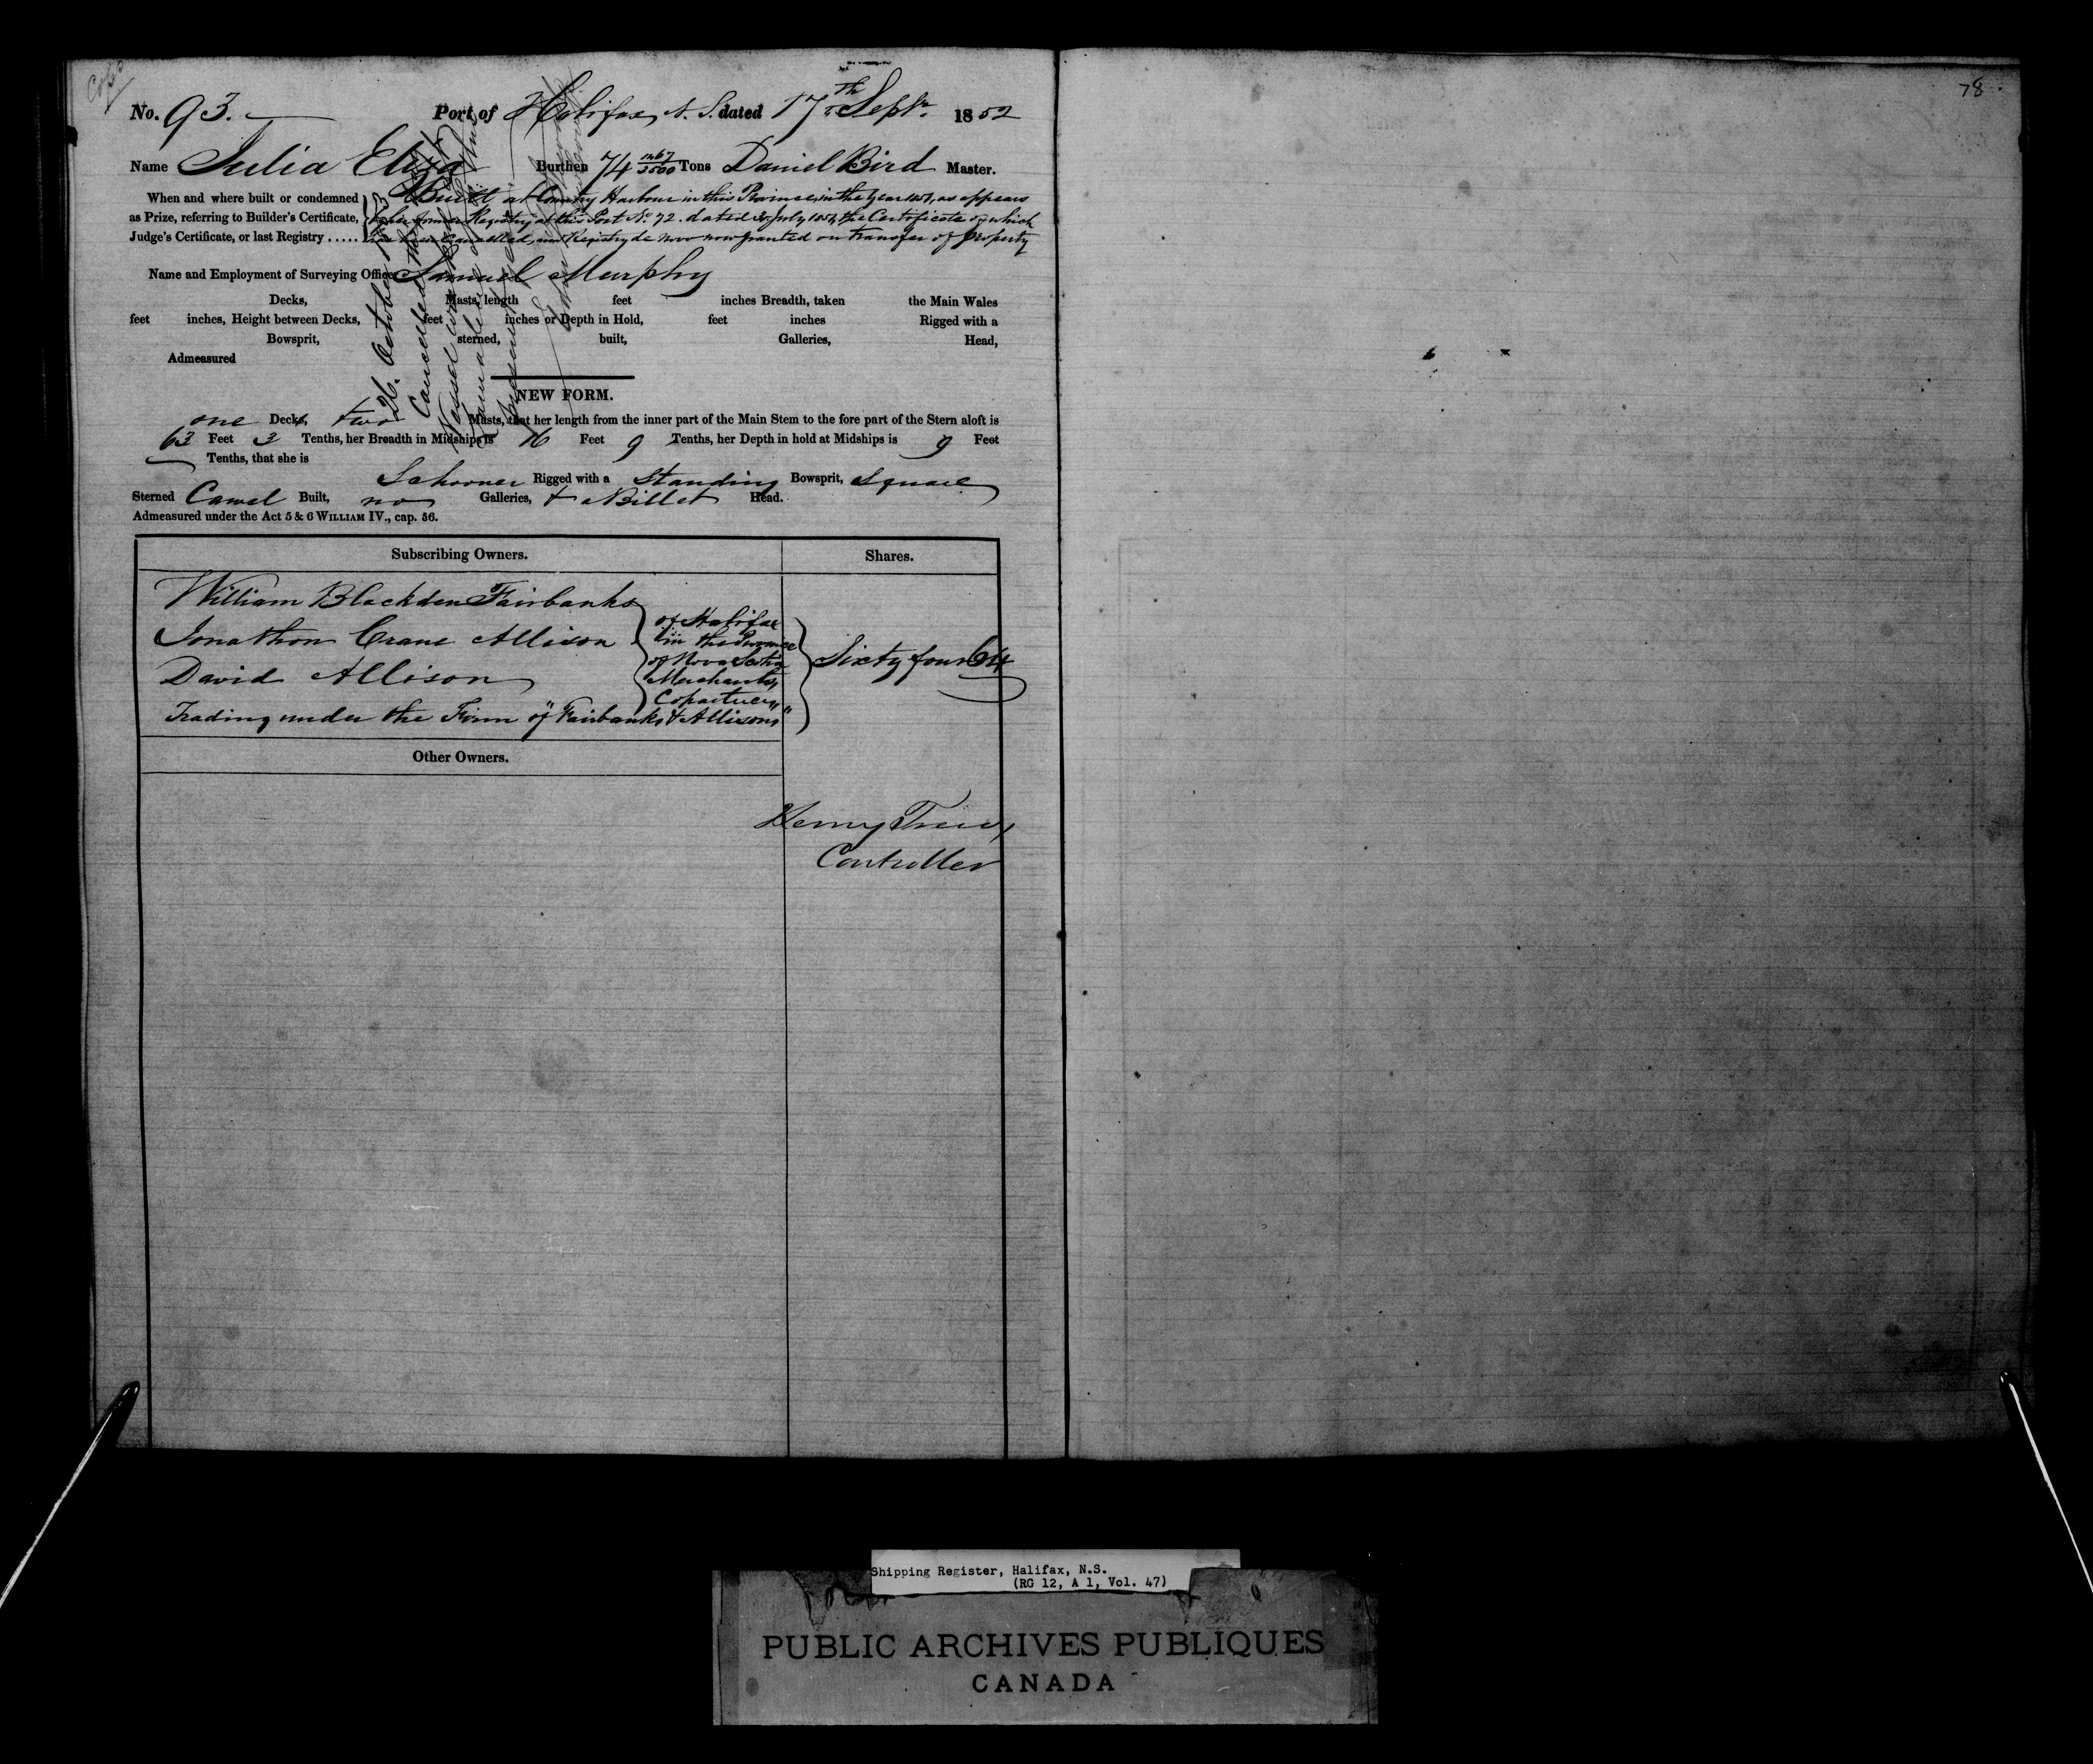 Copd
78
No. 93. Port of Halifax, N. S. dated 17th Septr. 1852
Name Julia Eliza Burthen 74 1267/3500 Tons Daniel Bird Master.
When and where built or condemned
as Prize, referring to Builder's Certificate,
Judge's Certificate, or last Registry .....
Built at Country Harbour in this Province in the Year 1851, as appears
by her former Registry at this Port No. 72. dated July 1851, the Certificate of which
has been Cancelled, and Registry de novo now granted on transfer of Property
Name and Employment of Surveying Officer Samuel Murphy
Decks, Masts, length feet inches Breadth, taken the Main Wales
feet inches, Height between Decks, feet inches or Depth in Hold, feet inches Rigged with a
Bowsprit, sterned, built, Galleries, Head,
Admeasured
26. October
Cancelled
Vessel
NEW FORM.
one Decks, two Masts, that her length from the inner part of the Main Stem to the fore part of the Stern aloft is
63 Feet 3 Tenths, her Breadth in Midships is 16 Feet 9 Tenths, her Depth in hold at Midships is 9 Feet
Tenths, that she is
Schooner Rigged with a Standing Bowsprit, Square
Sterned Carvel Built, no Galleries, & a Billet Head.
Admeasured under the Act 5 & 6 WILLIAM IV., cap. 56.
Subscribing Owners. Shares.
William Blackden Fairbanks
Jonathon Crane Allison
David Allison
of Halifax
in the Province
of Nova Scotia
Merchants,
Copartners,
Sixty four 64
Trading under the Firm of "Fairbanks & Allisons"
Other Owners.
Henry
Controller
Shipping Register, Halifax, N.S.
(RG 12, A 1, Vol. 47)
PUBLIC ARCHIVES PUBLIQUES
CANADA